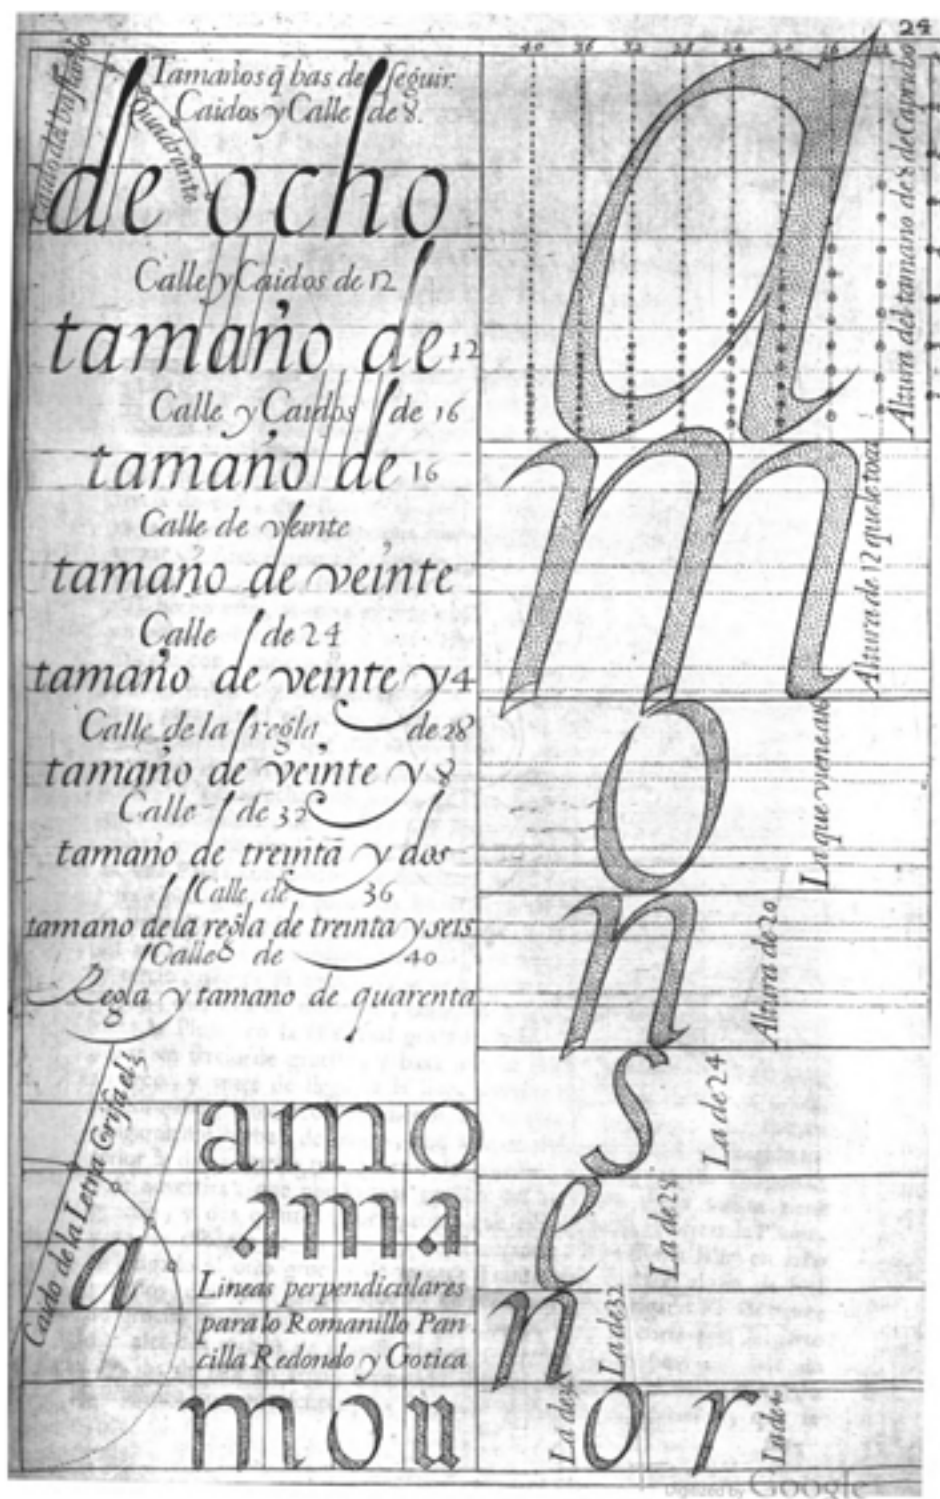 24
40 36 32 28 24 20 16 12
Caido del bastardo
Quadrante
Tamaños q̃ has de seguir.
Caidos y Calle de 8.
de ocho
Calle y Caidos de 12
tamaño de 12
Calle y Caidos de 16
tamaño de 16
Calle de veinte
tamaño de veinte
Calle de 24
tamaño de veinte y 4
Calle de la regla de 28
tamaño de veinte y 8
Calle de 32
tamaño de treinta y dos
Calle de 36
tamaño de la regla de treinta y seis
Calle de 40
Regla y tamano de quarenta
Caido de la Letra Grifa el 5
a
amo
ama
Lineas perpendiculares
para lo Romanillo Pan
cilla Redondo y Gotica
mou
a
Altura del tamano de 8 de Caprido
m
Altura de 12 que le toca
o
La que viene a 16
n
Altura de 20
s
La de 24
e
La de 28
n
La de 32
o
La de 36
r
La de 40
Digitized by Google